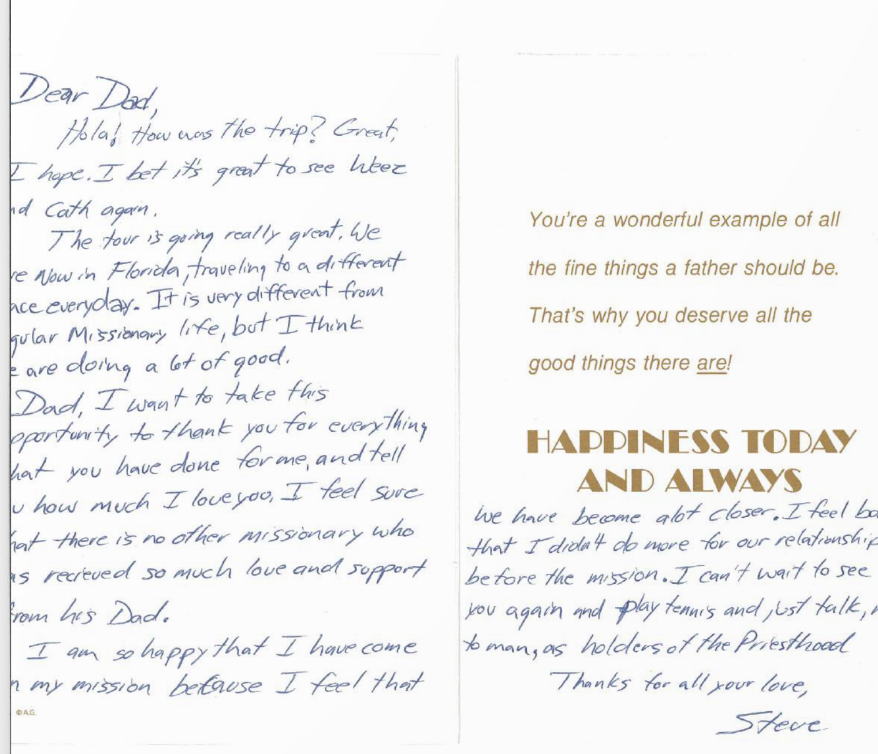 Dear Dad,
Hola! How was the trip? Great,
I hope. I bet it's great to see Weez
nd Cath again.
The tour is going really great. We
re Now in Florida, traveling to a different
ace everyday. It is very different from
gular Missionary life, but I think
e are doing a lot of good.
Dad, I want to take this
pportunity to thank you for everything
hat you have done for me, and tell
u how much I love you. I feel sure
hat there is no other missionary who
as recieved so much love and support
from his Dad.
I am so happy that I have come
n my mission because I feel that
©A.G.
You're a wonderful example of all
the fine things a father should be.
That's why you deserve all the
good things there are!
HAPPINESS TODAY
AND ALWAYS
we have become alot closer. I feel ba
that I didn't do more for our relationship
before the mission. I can't wait to see
you again and play tennis and just talk, m
to man, as holders of the Priesthood
Thanks for all your love,
Steve